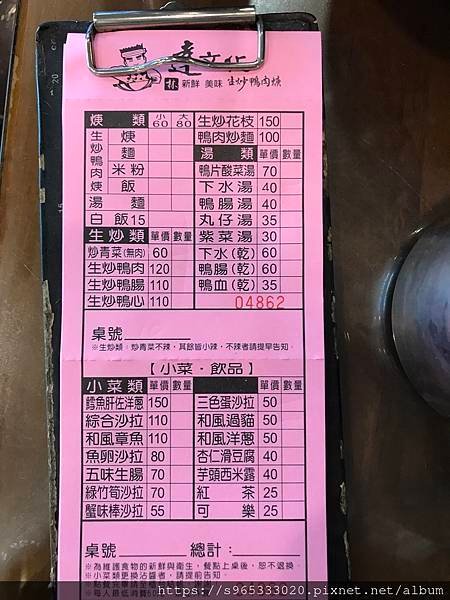 新鮮 美味 生炒鴨肉焿
焿類 小60 大80
生炒鴨肉焿 焿
麵
米粉
飯
湯麵
白飯15
生炒類 單價 數量
炒青菜(無肉) 60
生炒鴨肉 120
生炒鴨腸 110
生炒鴨心 110
生炒花枝 150
鴨肉炒麵 100
湯類 單價 數量
鴨片酸菜湯 70
下水湯 40
鴨腸湯 40
丸仔湯 35
紫菜湯 30
下水(乾) 60
鴨腸(乾) 60
鴨血(乾) 35
04862
桌號
※生炒類:炒青菜不辣,其餘皆小辣,不辣者請提早告知。
【小菜・飲品】
小菜類 單價 數量
鱈魚肝佐洋蔥 150
綜合沙拉 110
和風章魚 110
魚卵沙拉 80
五味生腸 70
綠竹筍沙拉 70
蟹味棒沙拉 55
單價 數量
三色蛋沙拉 50
和風過貓 50
和風洋蔥 50
杏仁滑豆腐 40
芋頭西米露 40
紅茶 25
可樂 25
桌號 總計:
※為維護食物的新鮮與衛生,餐點上桌後,恕不退換。
※小菜類更換沾醬者,請提前告知。
※每人最低消費60
https://s965333020.pixnet.net/album